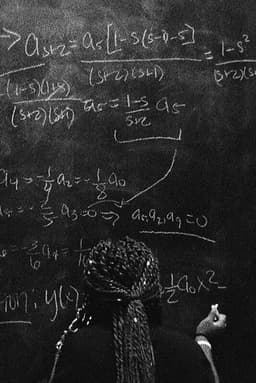 > a_{s+2} = a_s [1-s(s-1)-s] / (s+2)(s+1) = 1-s² / (s+2)(s+
(1-s)(1+s) / (s+2)(s+1) a_s = 1-s / s+2 a_s
a_4 = -1/4 a_2 = -1/8 a_0
a_3=0 ⇒ a_5, a_7, a_9 = 0
-3/6 a_4 = 1/
ion: y(
1/2 a_0 x² -